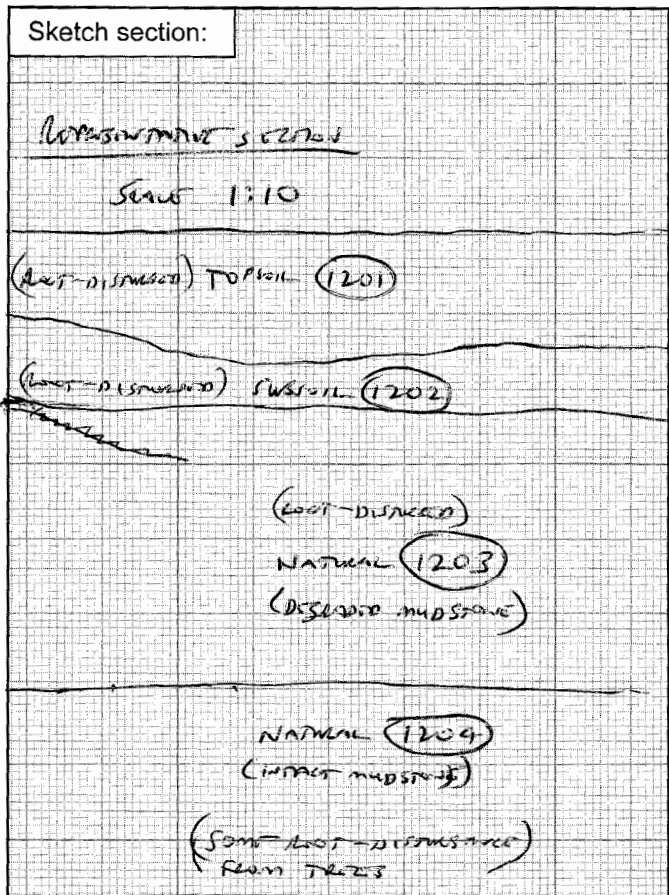 Sketch section:
REPRESENTATIVE SECTION
SCALE 1:10
(ROOT-DISTURBED) TOPSOIL 1201
(ROOT-DISTURBED) SUBSOIL 1202
(ROOT-DISTURBED)
NATURAL 1203
(DEGRADED MUDSTONE)
NATURAL 1204
(INTACT MUDSTONE)
(SOME ROOT-DISTURBANCE
FROM TREES)